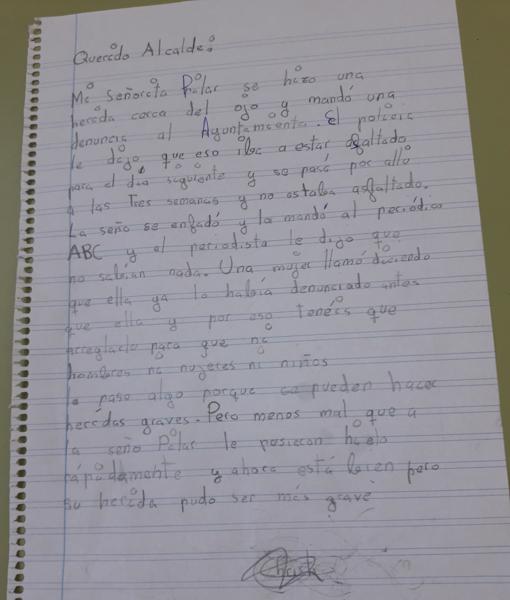 Querido Alcalde:
Mi Señorita Pilar se hizo una
herida cerca del ojo y mandó una
denuncia al Ayuntamiento. El policía
le dijo que eso iba a estar asfaltado
para el día siguiente y se pasó por allí
a las Tres semanas y no estaba asfaltado.
La seño se enfadó y lo mandó al periódico
ABC y el periodista le digo que
no sabían nada. Una mujer llamó diciendo
que ella ya lo había denunciado antes
que ella y por eso tenéis que
arreglarlo para que ni
hombres ni mujeres ni niños
le pase algo porque se pueden hacer
heridas graves. Pero menos mal que a
la seño Pilar le pusieron hielo
rápidamente y ahora está bien pero
su herida pudo ser más grave